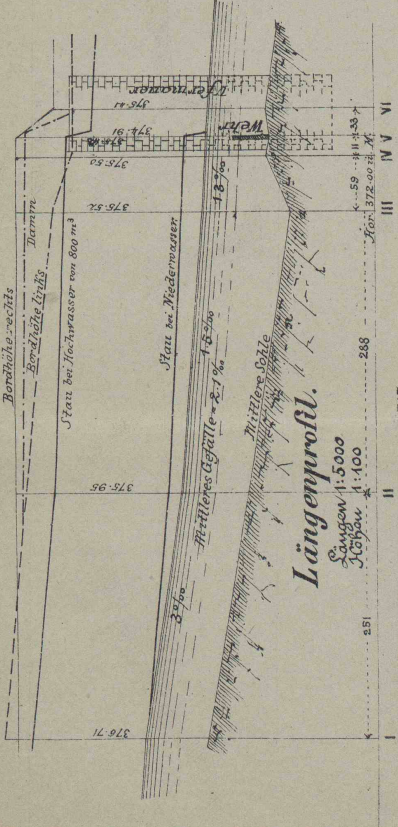 Bordhöhe rechts
Damm
Bordhöhe links
Stau bei Hochwasser von 800 m³
Stau bei Niederwasser
3‰
1·5‰
1·8‰
Mittleres Gefälle = 2·1‰
Mittlere Sohle
Wehr
Ufermauer
376·71
375·95
375·52
375·50
374·91
375·41
Längenprofil.
Längen 1:5000
Höhen 1:100
251
288
59
11
33
Hor. 372·00 ü. M.
I
II
III
IV
V
VI